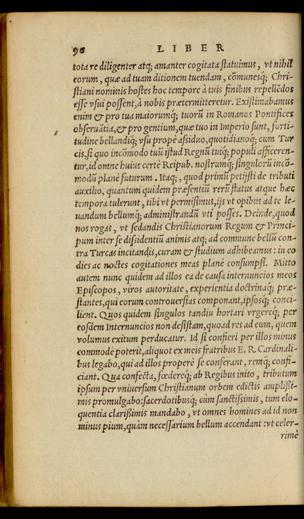 96 LIBER
tota re diligenter atq; amanter cogitata statuimus, vt nihil
eorum, quæ ad tuam ditionem tuendam, cōmunesq; Chri-
stiani nominis hostes hoc tempore à tuis finibus repellēdos
esse vsui possent, à nobis prætermitteretur. Existimabamus
enim & pro tua maiorumq; tuorū in Romanos Pontifices
obseruātia, & pro gentium, quæ tuo in Imperio sunt, forti-
tudine bellandiq; vsu prope assiduo, quotidianoq; cum Tur
cis, si quo incōmodo tuū istud Regnū tuiq; populi afficeren-
tur, id omne huius certè Reipub. nostrumq; singulorū incō-
modū planè futurum. Itaq;, quod primū petijsti de tributi
auxilio, quantum quidem præsentiū rerū status atque hæc
tempora tulerunt, tibi vt permisimus, ijs vt opibus ad te le-
uandum bellumq; administrandū vti posses. Deinde, quod
nos rogas, vt sedandis Christianorum Regum & Princi-
pum inter se dissidentiū animis atq; ad commune bellū con-
tra Turcas incitandis, curam & studium adhibeamus: in eo
dies ac noctes cogitationes meas planè consumpsi. Mitto
autem nunc quidem ad illos ea de causa internuncios meos
Episcopos, viros autoritate, experientia doctrinaq; præ-
stantes, qui eorum controuersias componant, ipsosq; conci-
lient. Quos quidem singulos tandiu hortari vrgereq; per
eosdem Internuncios non desistam, quoad res ad eum, quem
volumus exitum perducatur. Id si confieri per illos minus
commode poterit, aliquot ex meis fratribus E. R. Cardinali-
bus legabo, qui ad illos properè se conferant, remq; confi-
ciant. Qua confecta, fœdereq; ab Regibus inito, tributum
ipsum per vniuersum Christianum orbem edictis amplißi-
mis promulgabo: sacerdotibusq; cùm sanctißimis, tum elo-
quentia clarißimis mandabo, vt omnes homines ad id non
minus pium, quàm necessarium bellum accendant vt celer-
rimè